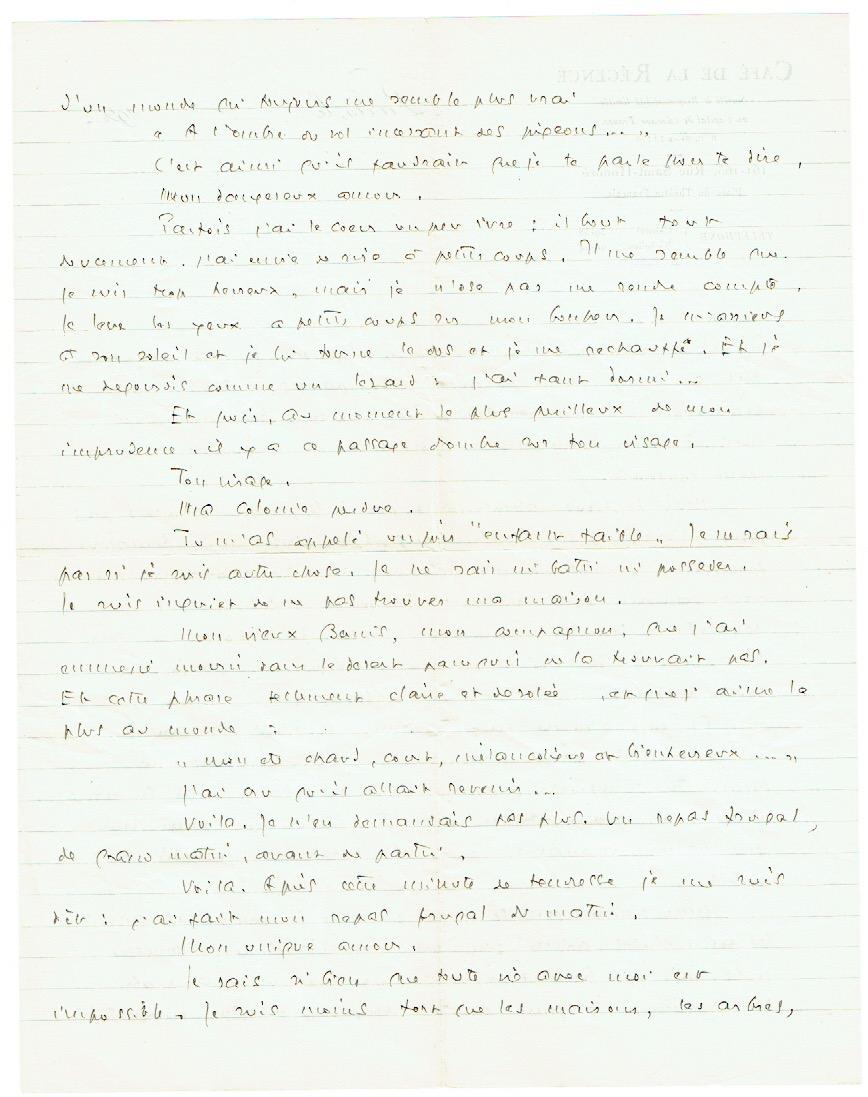 d'un monde qui toujours me semble plus vrai
" A l'ombre du vol incessant des pigeons... "
C'est ainsi qu'il faudrait que je te parle pour te dire,
Mon dangereux amour.
Parfois j'ai le coeur un peu ivre : il bout tout
doucement. j'ai envie de rire à petits coups. Il me semble que
je suis trop heureux, mais je n'ose pas me rendre compte.
Je lève les yeux à petits coups sur mon bonheur. Je m'assieds
à son soleil et je lui tourne le dos et je me rechauffe. Et je
me degourdis comme un lezard : j'ai tant dormi...
Et puis, au moment le plus perilleux de mon
imprudence, il y a ce passage d'ombre sur ton visage.
Ton visage.
Ma Colonie perdue.
Tu m'as appelé un jour "enfant faible". Je ne sais
pas si je suis autre chose. Je ne sais ni batir ni posseder.
Je suis inquiet de ne pas trouver ma maison.
Mon vieux Bernis, mon compagnon, que j'ai
emmené mourir dans le desert parcequ'il ne la trouvait pas.
Et cette phrase tellement claire et desolée, et que j'aime le
plus au monde :
" Mon été chaud, court, mélancolique et bienheureux .... "
J'ai cru qu'il allait revenir...
Voila. Je n'en demandais pas plus. Un repas frugal,
de grand matin, avant de partir.
Voila. Après cette minute de tendresse je me suis
dit : j'ai fait mon repas frugal du matin.
Mon unique amour.
Je sais si bien que toute vie avec moi est
impossible. Je suis moins fort que les maisons, les arbres,
CAFÉ DE LA RÉGENCE
161-163, Rue Saint-Honoré
TÉLÉPHONE